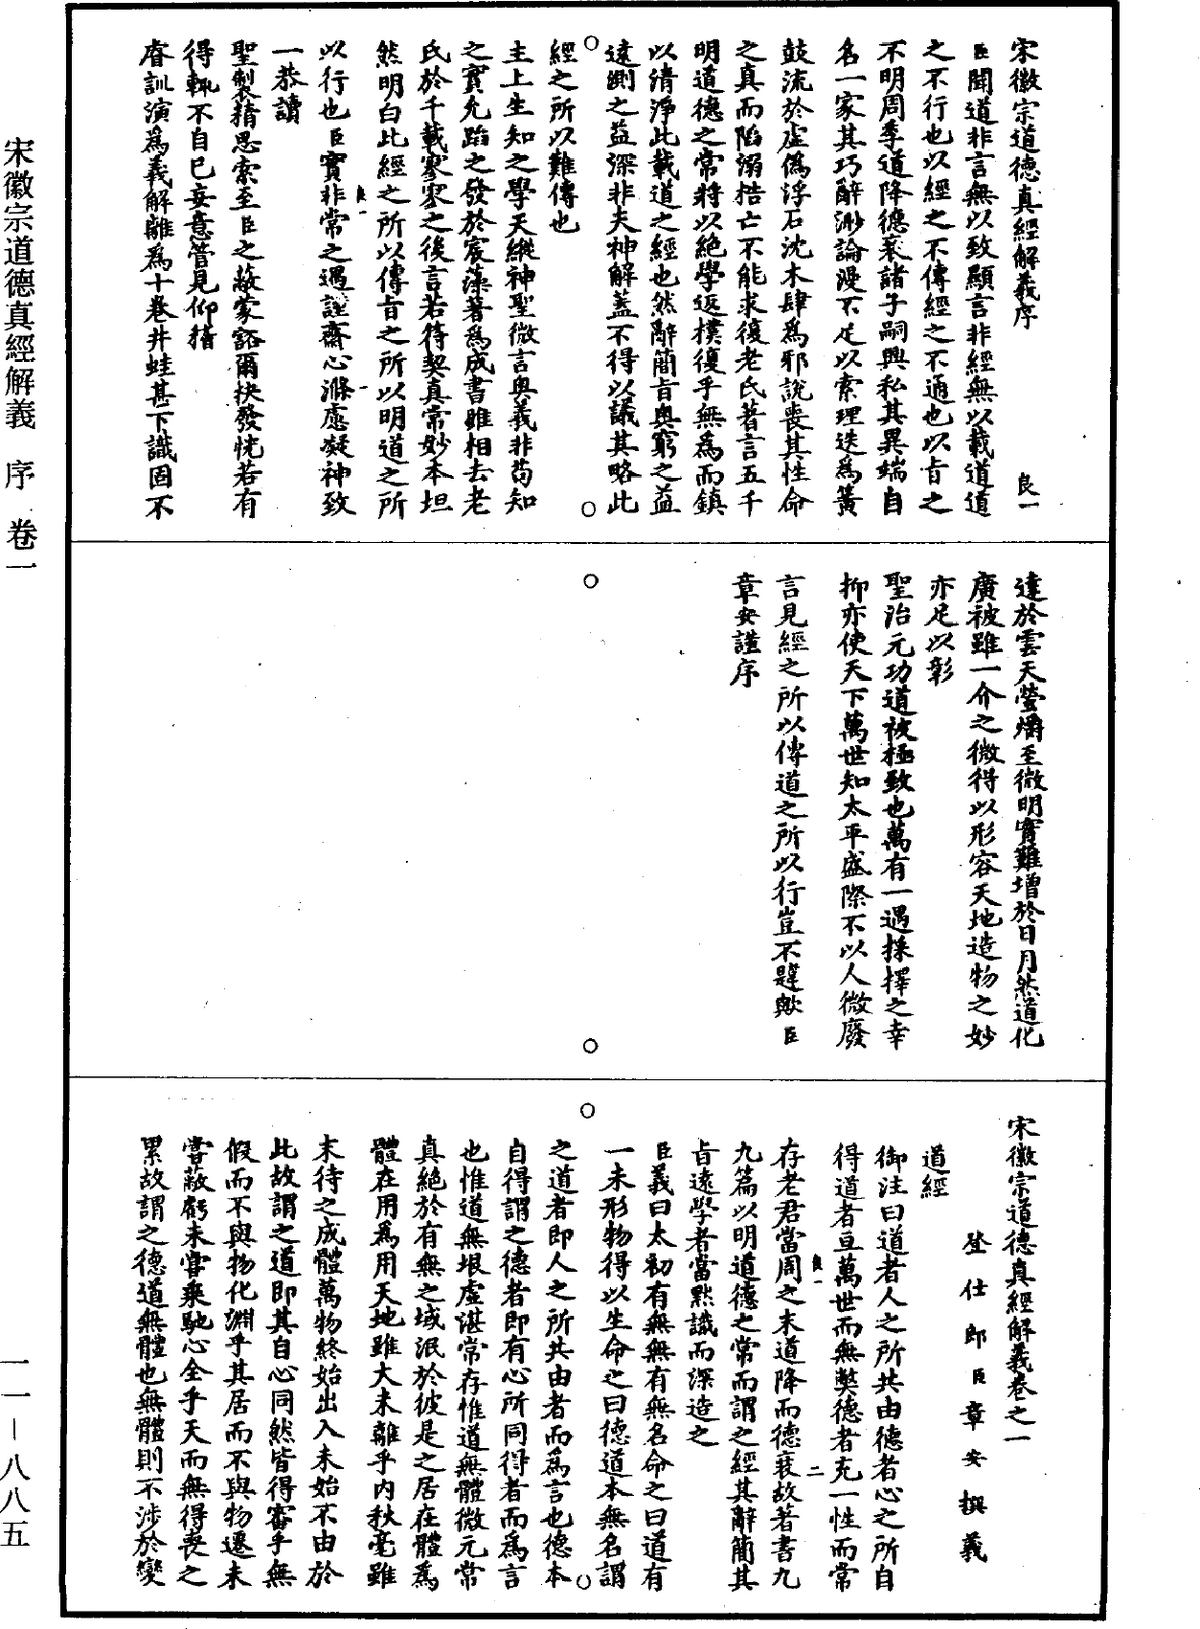 宋徽宗道德真經解義序　卷一
一一—八八五
宋徽宗道德真經解義序
良一
臣聞道非言無以致顯言非經無以載道道
之不行也以經之不傳經之不通也以旨之
不明周季道降德衰諸子嗣興私其異端自
名一家其巧辭渺論漫不足以索理迭為簧
鼓流於虛偽浮石沈木肆為邪說喪其性命
之真而陷溺梏亡不能求復老氏著言五千
明道德之常將以絕學返樸復乎無為而鎮
以清淨此載道之經也然辭簡旨奧窮之益
遠測之益深非夫神解蓋不得以議其略此
經之所以難傳也
主上生知之學天縱神聖微言奧義非苟知
之實允蹈之發於宸藻著為成書雖相去老
氏於千載寥寥之後言若符契真常妙本坦
然明白此經之所以傳旨之所以明道之所
以行也臣實非常之遇謹齋心滌慮凝神致
良一　一
一恭讀
聖製精思索至臣之蔽蒙豁爾抉發恍若有
得輒不自已妄意管見仰措
睿訓演為義解離為十卷井蛙甚下識固不
達於雲天螢爝至微明實難增於日月然道化
廣被雖一介之微得以形容天地造物之妙
亦足以彰
聖治元功道被極致也萬有一遇採擇之幸
抑亦使天下萬世知太平盛際不以人微廢
言見經之所以傳道之所以行豈不韙歟臣
章安謹序
宋徽宗道德真經解義卷之一
登仕郎臣章安撰義
道經
御注曰道者人之所共由德者心之所自
得道者亘萬世而無弊德者充一性而常
良一　二
存老君當周之末道降而德衰故著書九
九篇以明道德之常而謂之經其辭簡其
旨遠學者當默識而深造之
臣義曰太初有無無有無名命之曰道有
一未形物得以生命之曰德道本無名謂
之道者即人之所共由者而為言也德本
自得謂之德者即有心所同得者而為言
也惟道無垠虛湛常存惟道無體微元常
真絕於有無之域泯於彼是之居在體為
體在用為用天地雖大未離乎內秋毫雖
末待之成體萬物終始出入未始不由於
此故謂之道即其自心同然皆得審乎無
假而不與物化淵乎其居而不與物遷未
嘗蔽虧未嘗乘馳心全乎天而無得喪之
累故謂之德道無體也無體則不涉於變